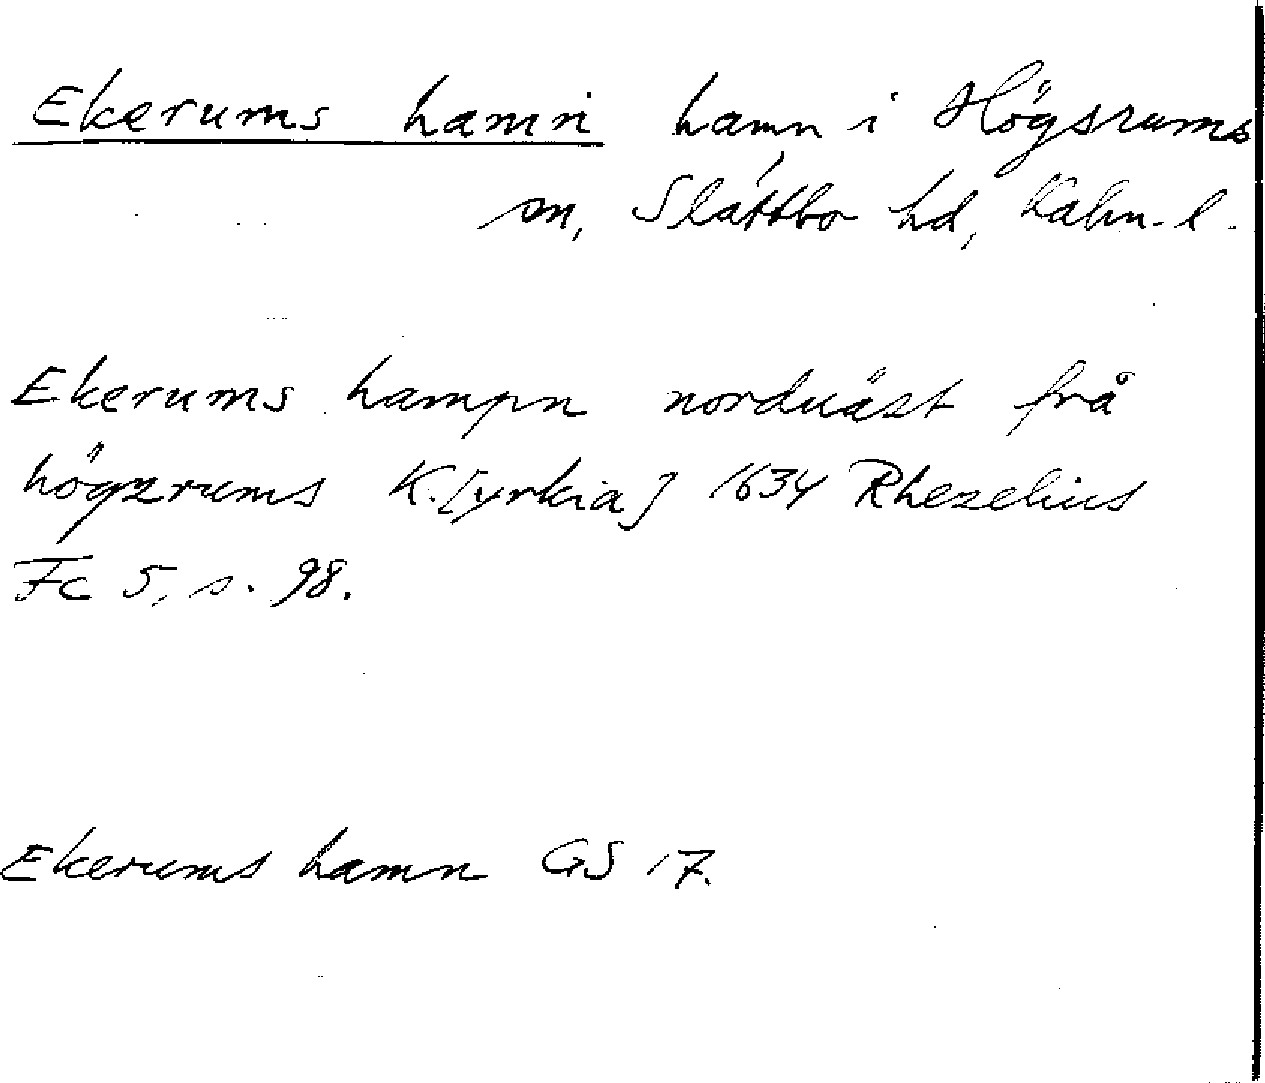 Ekerums hamn hamn i Högsrums
sn, Slättbo hd, Kalm. l.
Ekerums hampn norduäst frå
högzrums K.[yrkia] 1634 Rhezelius
Fc 5, s. 98.
Ekerums hamn GS 17.